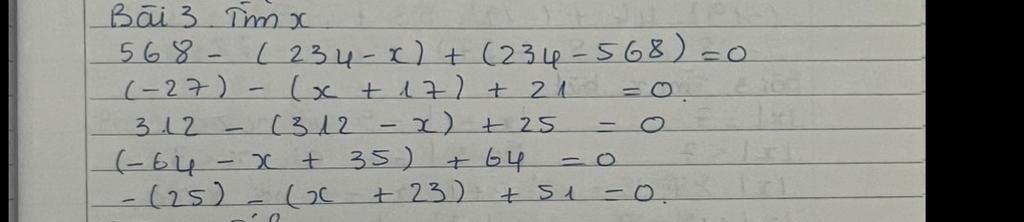 Bāi 3 Tìm x
568 - (234 - x) + (234 - 568) = 0
(-27) - (x + 17) + 21 = 0.
312 - (312 - x) + 25 = 0
(-64 - x + 35) + 64 = 0
-(25) - (x + 23) + 51 = 0.